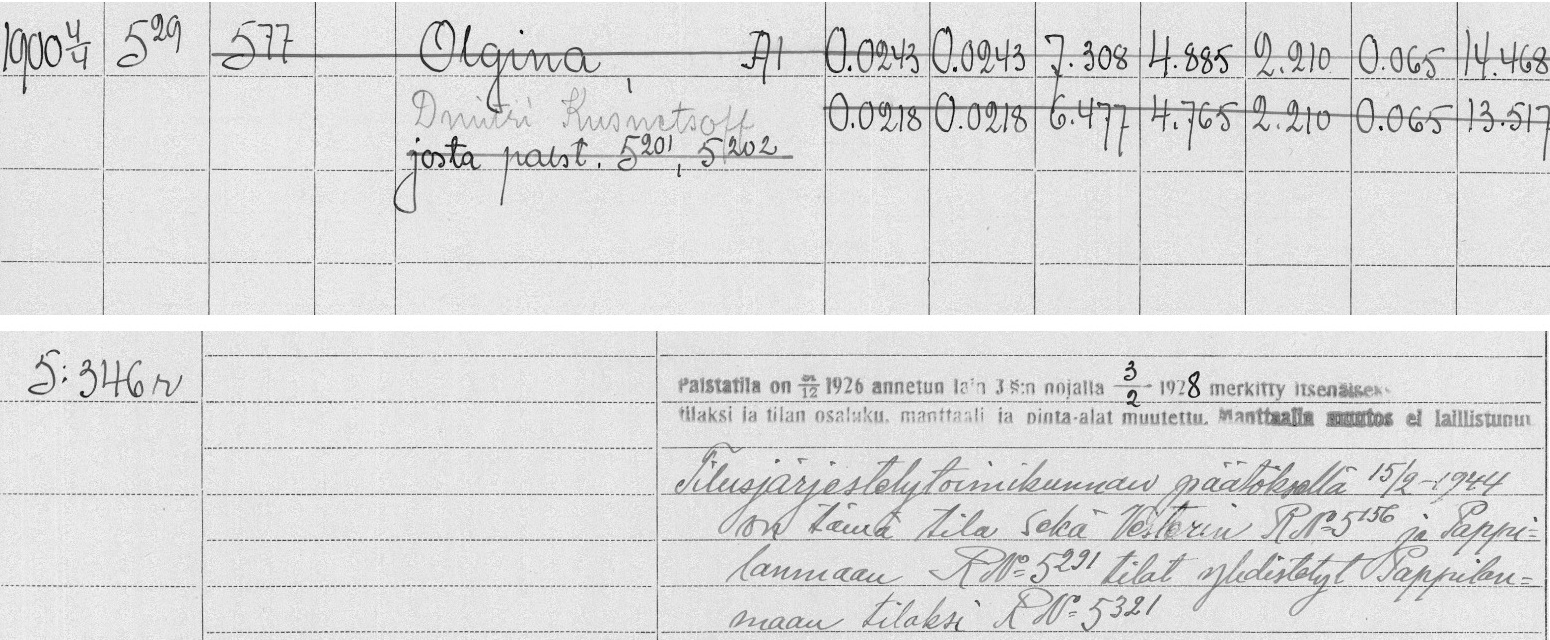 1900 4/4 5²⁹ 577 Olgina, Al 0.0243 0.0243 7.308 4.885 2.210 0.065 14.468
Dmitri Kusnetsoff 0.0218 0.0218 6.477 4.765 2.210 0.065 13.517
josta palst. 5²⁰¹, 5²⁰²
5:346 r
Palstatila on /12 1926 annetun lain 3 §:n nojalla 3/2 1928 merkitty itsenäisek-
tilaksi ja tilan osaluku, manttaali ja pinta-alat muutettu. Manttaalin muutos ei laillistunut
Tilusjärjestelytoimikunnan päätöksellä 15/2-1944
on tämä tila sekä Vesterin RN:o 5¹⁵⁶ ja Pappi=
lanmaan RN:o 5²⁹¹ tilat yhdistetyt Pappilan=
maan tilaksi RN:o 5³²¹